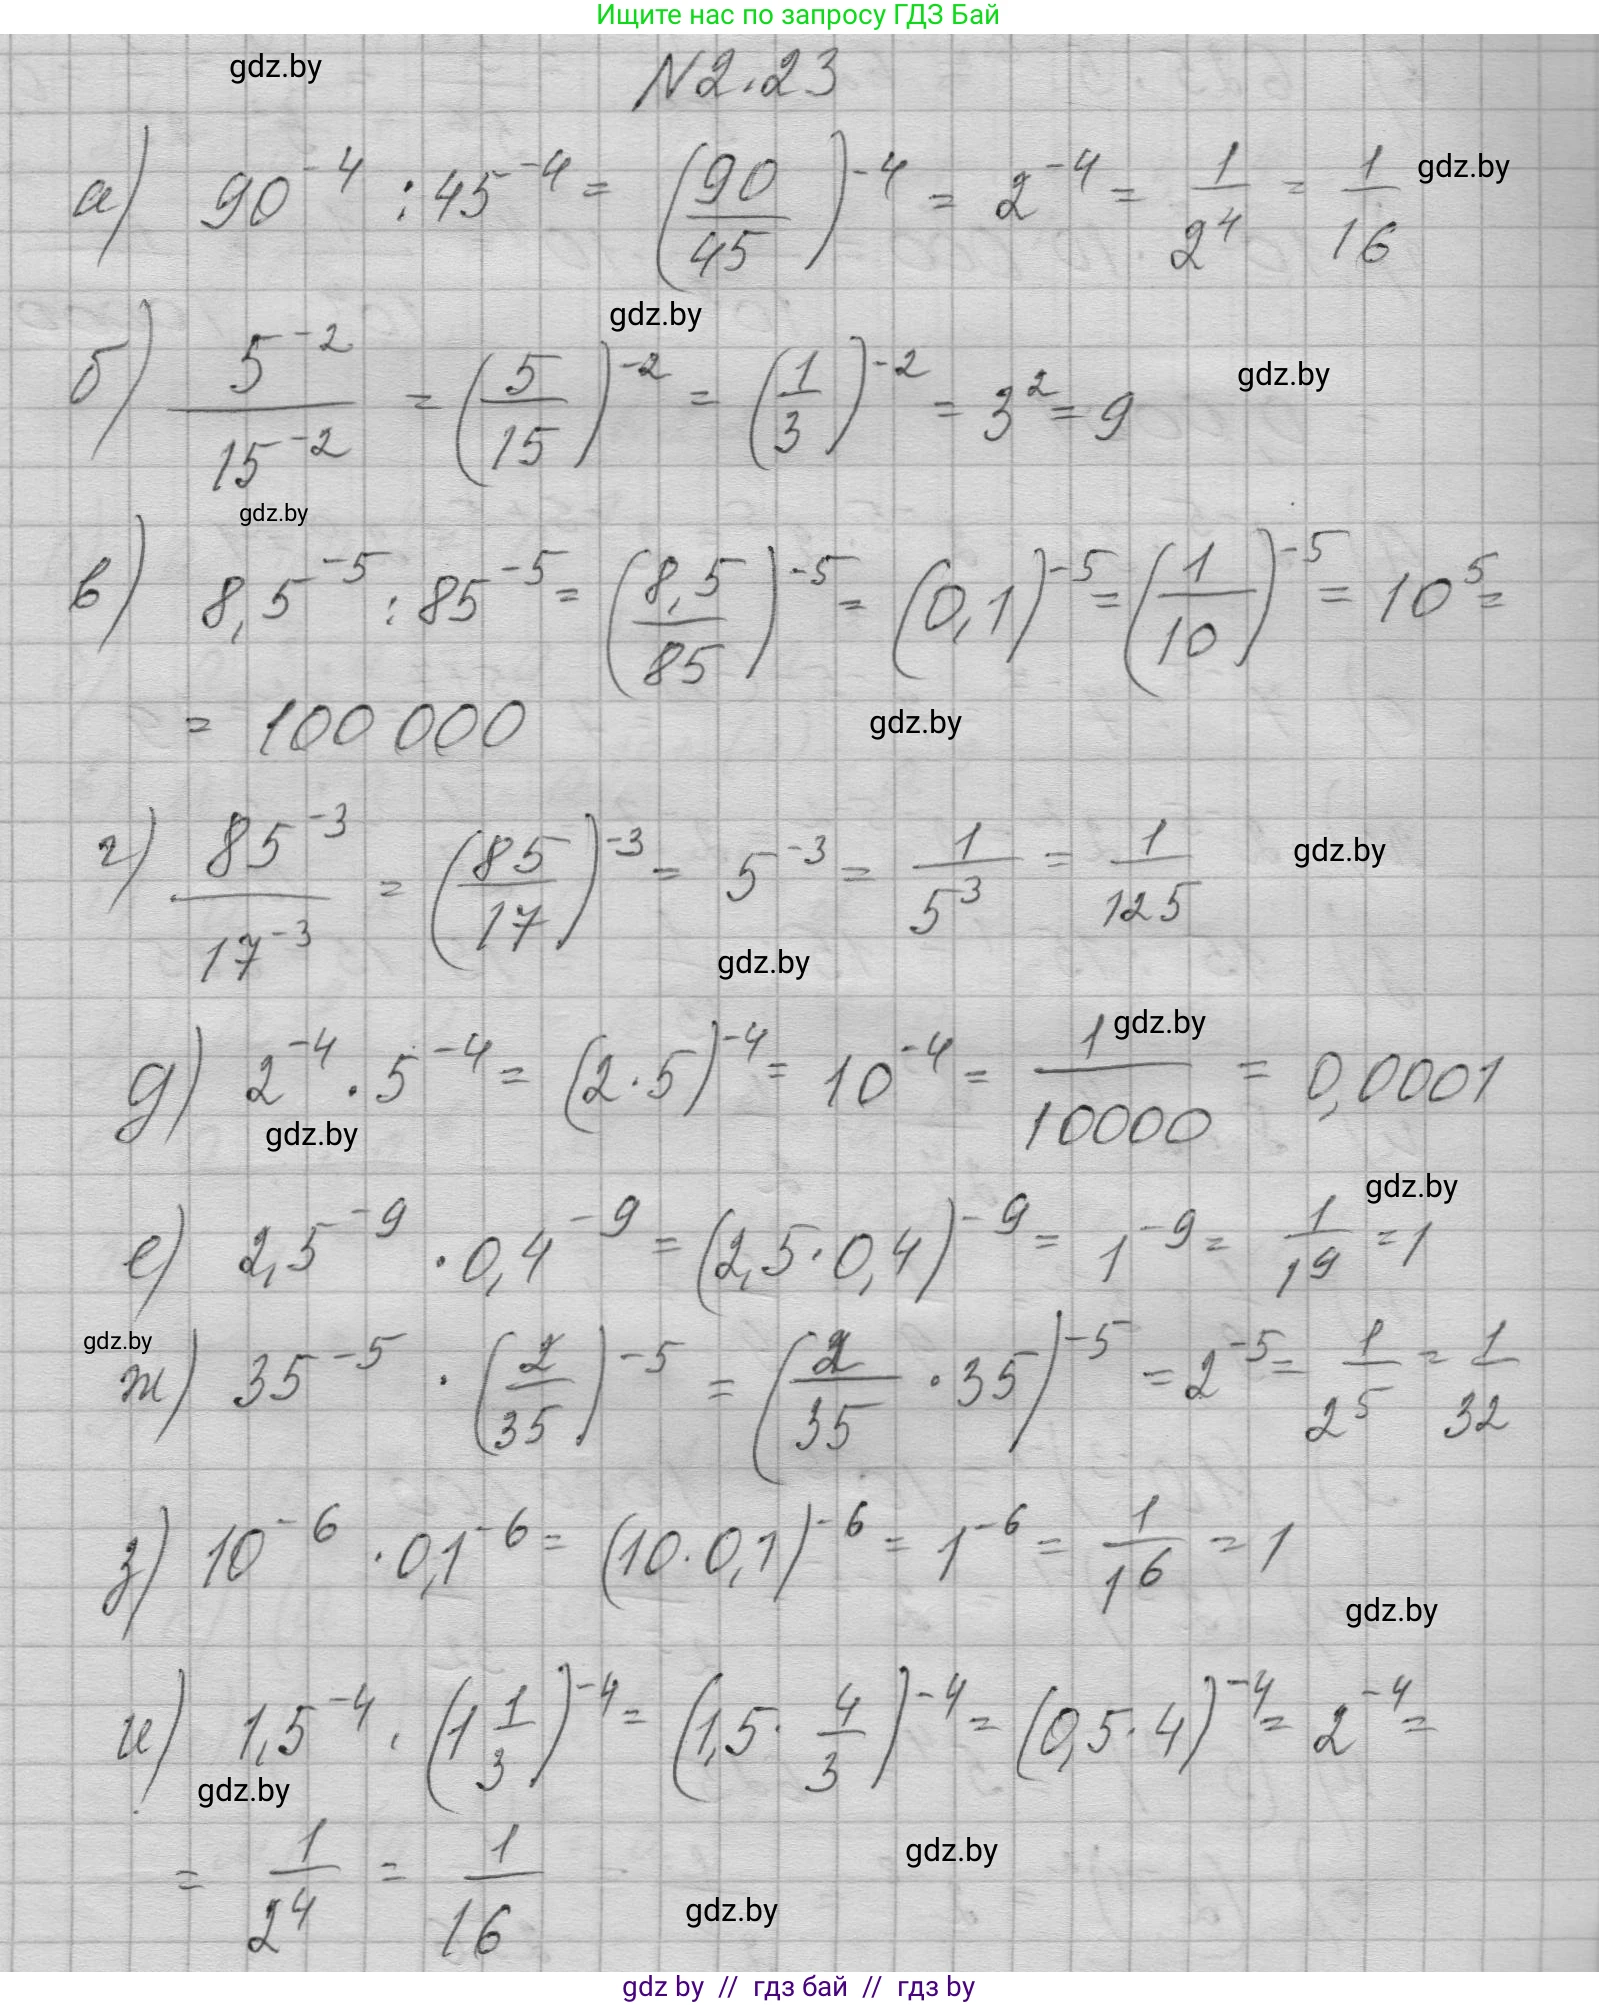 Ищите нас по запросу ГДЗ Бай
gdz.by
N2.23
а) 90^-4 : 45^-4 = (90/45)^-4 = 2^-4 = 1/2^4 = 1/16 gdz.by
gdz.by
б) 5^-2/15^-2 = (5/15)^-2 = (1/3)^-2 = 3^2 = 9 gdz.by
gdz.by
в) 8,5^-5 : 85^-5 = (8,5/85)^-5 = (0,1)^-5 = (1/10)^-5 = 10^5 =
= 100 000 gdz.by
г) 85^-3/17^-3 = (85/17)^-3 = 5^-3 = 1/5^3 = 1/125 gdz.by
gdz.by
gdz.by
д) 2^-4 · 5^-4 = (2·5)^-4 = 10^-4 = 1/10000 = 0,0001
gdz.by
gdz.by
е) 2,5^-9 · 0,4^-9 = (2,5·0,4)^-9 = 1^-9 = 1/1^9 = 1
gdz.by
ж) 35^-5 · (2/35)^-5 = (2/35 · 35)^-5 = 2^-5 = 1/2^5 = 1/32
з) 10^-6 · 0,1^-6 = (10·0,1)^-6 = 1^-6 = 1/1^6 = 1
gdz.by
и) 1,5^-4 · (1 1/3)^-4 = (1,5 · 4/3)^-4 = (0,5·4)^-4 = 2^-4 =
gdz.by
= 1/2^4 = 1/16 gdz.by
gdz.by
gdz by // гдз бай // гдз by